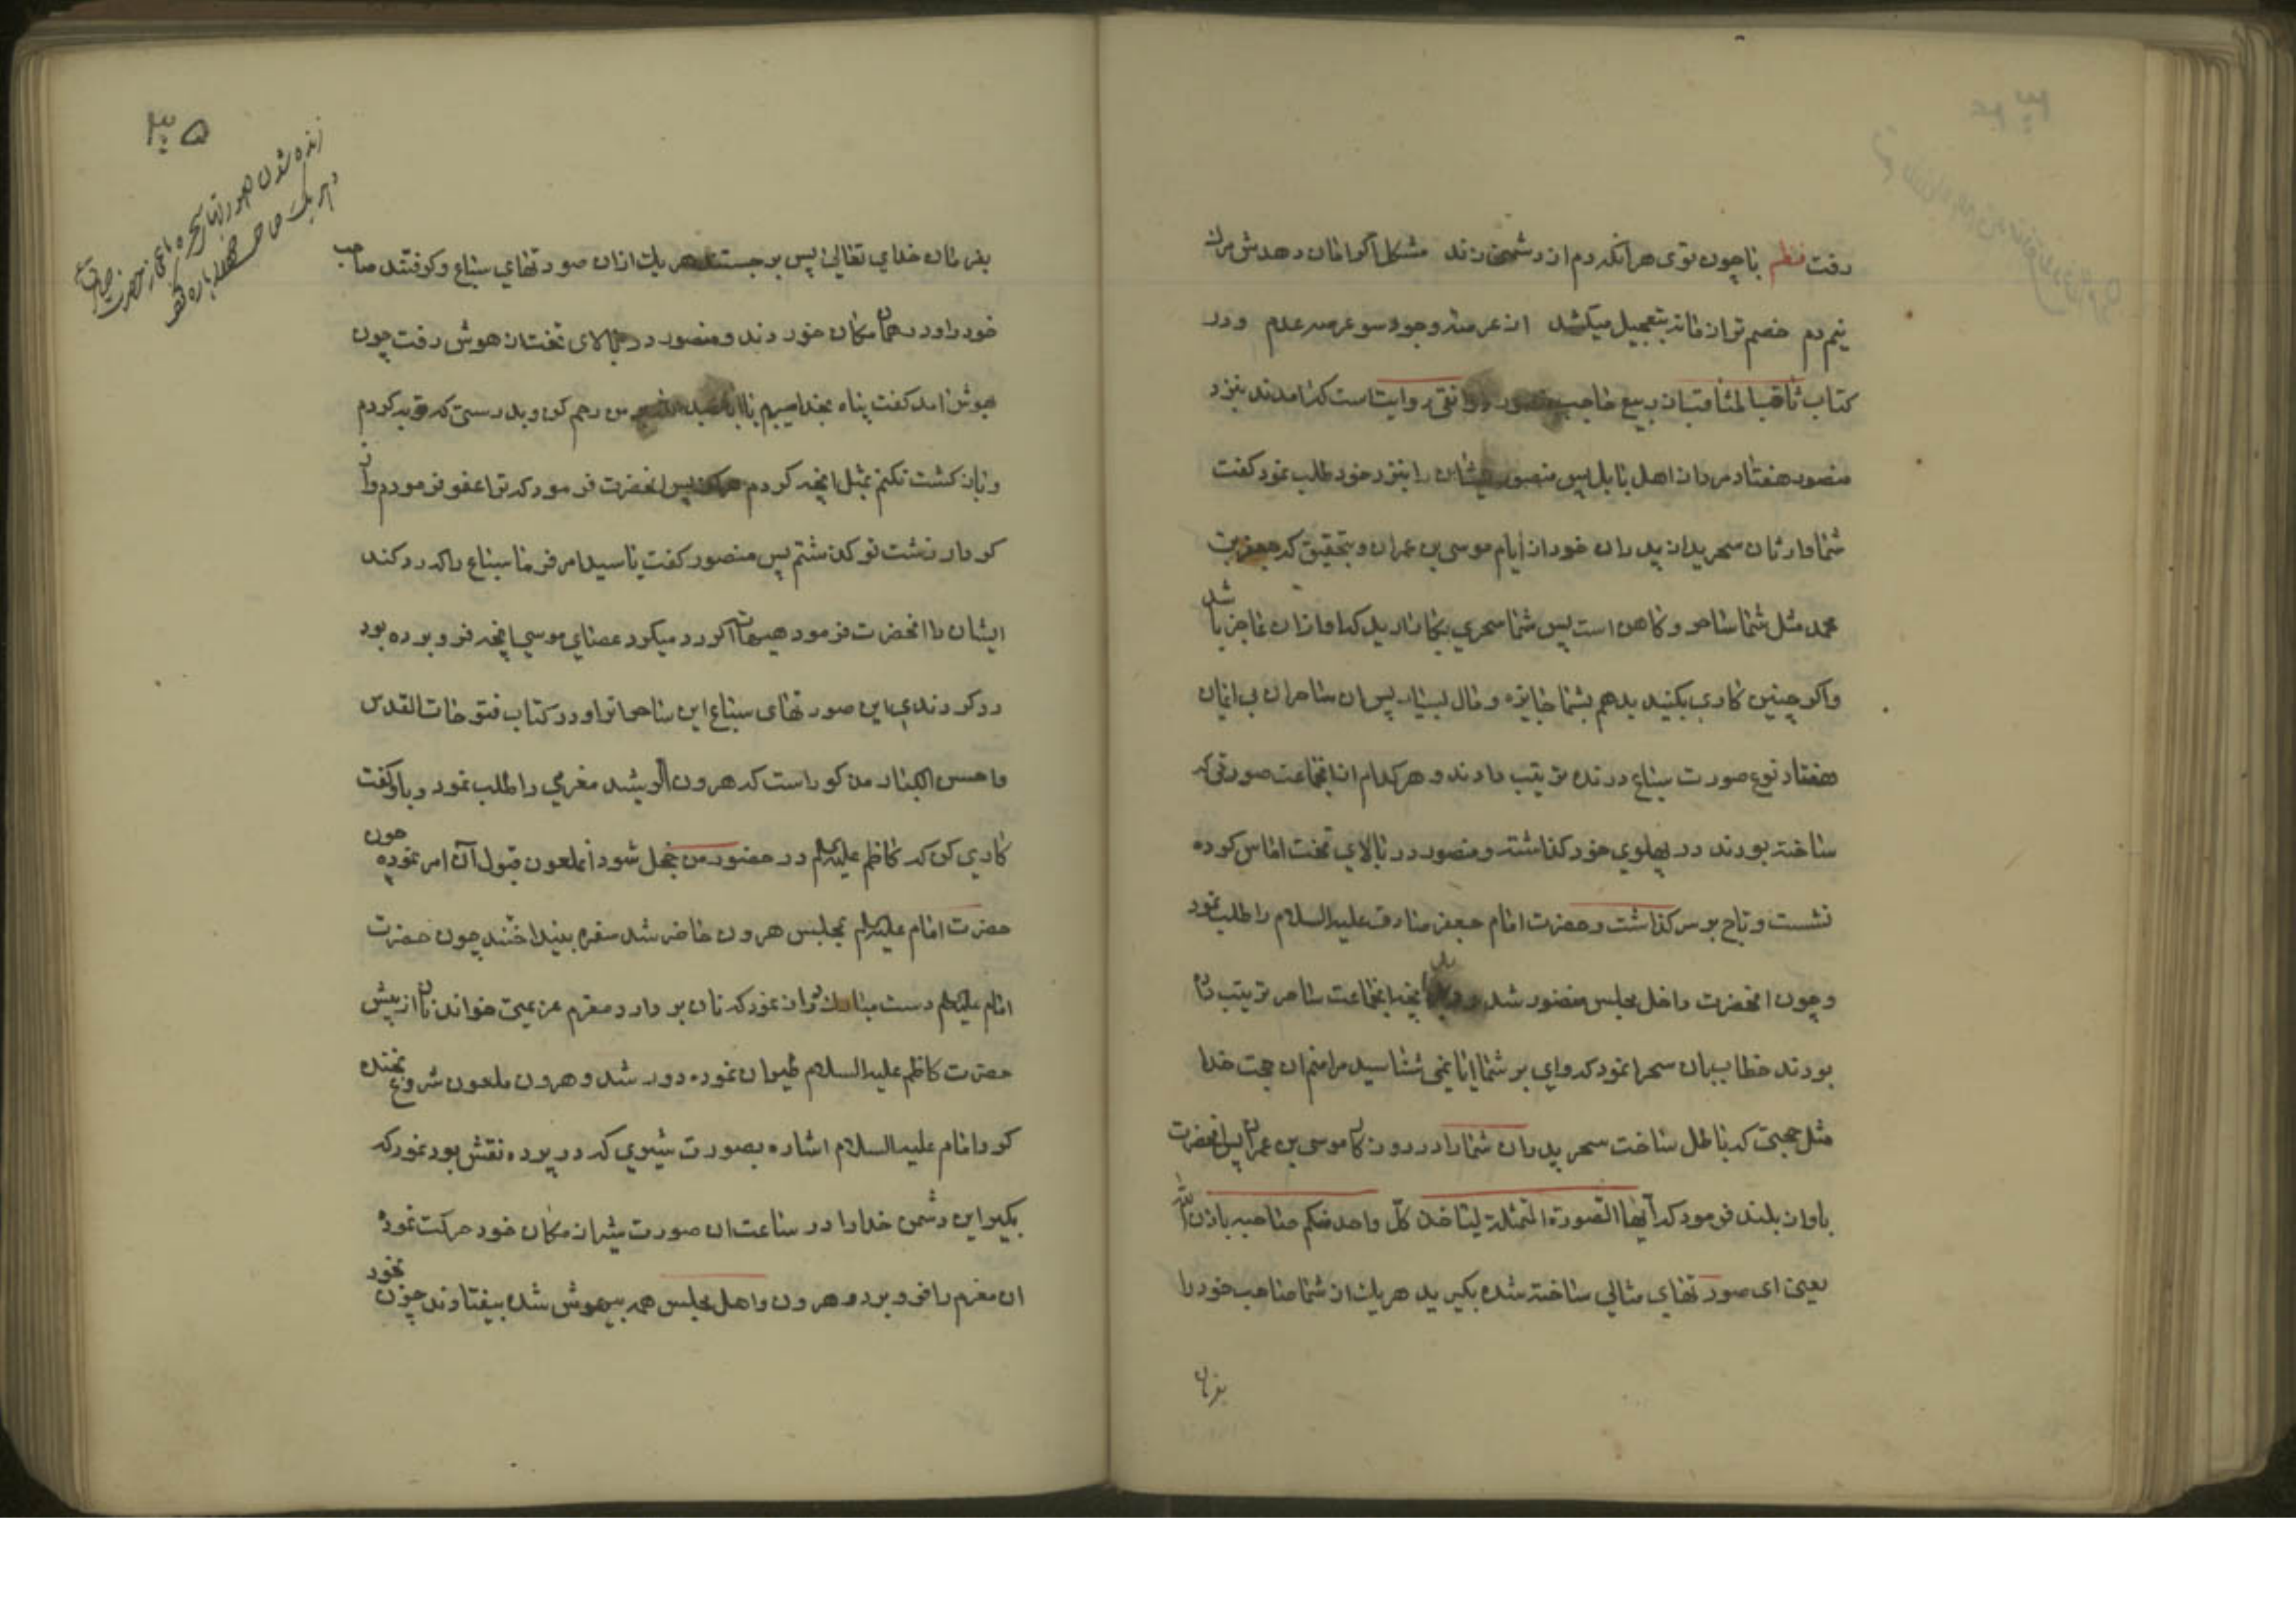 رفت نظم با چون توی هر آنکه دم از دشمنی زند مشکل اگر امان دهدش مرک
نیم دم خصم تو از فنا بتعجیل میکشد از عرصه وجود سوی عرصه عدم و در
کتاب ثاقب المناقب از ربیع حاجب منصور دوانقی روایتست که آمدند بنزد
منصور هفتاد مرد از اهل بابل پس منصور ایشان را بنزد خود طلب نمود گفت
شما وارثان سحرید از پدران خود از ایام موسی بن عمران و بتحقیق که جعفر بن
محمد مثل شما ساحر و کاهن است پس شما سحری بکار ارید که او ازان عاجز باشد
واکر چنین کاری بکنید بدهم بشما جایزه و مال بسیار پس ان ساحران بی ایمان
هفتاد نوع صورت سباع درنده ترتیب دادند و هر کدام از انجماعت صورتی که
ساخته بودند در پهلوی خود کذاشته و منصور در بالای تخت اماس کرده
نشست و تاج بر سر کذاشت و حضرت امام جعفر صادق علیه السلام را طلب نمود
و چون انحضرت داخل مجلس منصور شد و دید آنچه انجماعت ساحر ترتیب داده
بودند خطاب بان سحرا نمود که وای بر شما ایا نمی شناسید مرا منم ان حجت خدا
مثل حجتی که باطل ساخت سحر پدران شما را در روزگار موسی بن عمران پس انحضرت
باواز بلند فرمود که ایها الصورة الممثلة لیاخذ کل واحد منکم صاحبه باذن الله
یعنی ای صورتهای مثالی ساخته شده بکیرید هر یک از شما صاحب خود را
بفرمان
۳۰۵
زنده شدن صورتهای سحره
بفرمان خدای تعالی پس برجستند هر یک ازان صورتهای سباع و کرفتند صاحب
خود را و در همان مکان خوردند و منصور در بالای تخت از هوش رفت چون
بهوش امد کفت پناه بخدا میبرم یا ابا عبد الله بر من رحم کن و بدرستی که توبه کردم
و باز کشت نکنم بمثل انچه کردم پس انحضرت فرمود که ترا عفو فرمودم و از
کردار زشت تو کذشتم پس منصور کفت یا سید امر فرما سباع را که رد کند
ایشان را انحضرت فرمود هیهات اکر رد میکرد عصای موسی انچه فرو برده بود
رد کردندی این صورتهای سباع این ساحرانرا و در کتاب فتوحات القدس
و احسن الکبار مذکور است که هرون الرشید مغرمی را طلب نمود و باو کفت
کاری کن که کاظم علیه السلام در حضور من خجل شود آنملعون قبول آن امر نموده چون
حضرت امام علیه السلام بمجلس هرون حاضر شد سفره بینداختند چون حضرت
امام علیه السلام دست مبارک دراز نمود که نان بر دارد مغرم عزیمتی خواند نان از پیش
حضرت کاظم علیه السلام طیران نموده دور شد و هرون ملعون شروع بخنده
کرد امام علیه السلام اشاره بصورت شیری که در پرده نقش بود نمود که
بکیر این دشمن خدا را در ساعت ان صورت شیر از مکان خود حرکت نموده
ان مغرم را فرو برد و هرون و اهل مجلس همه بیهوش شده بیفتادند چون